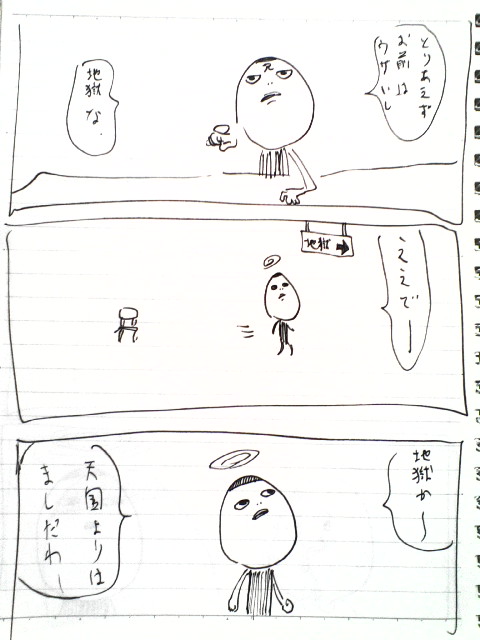 とりあえず
お前は
ウザいし
地獄な.
ええで——
地獄
地獄か〜
天国よりは
ましだわー